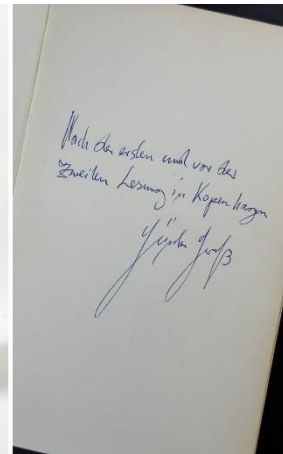 Nach der ersten und vor der
Zweiten Lesung in Kopenhagen
Günter Graß